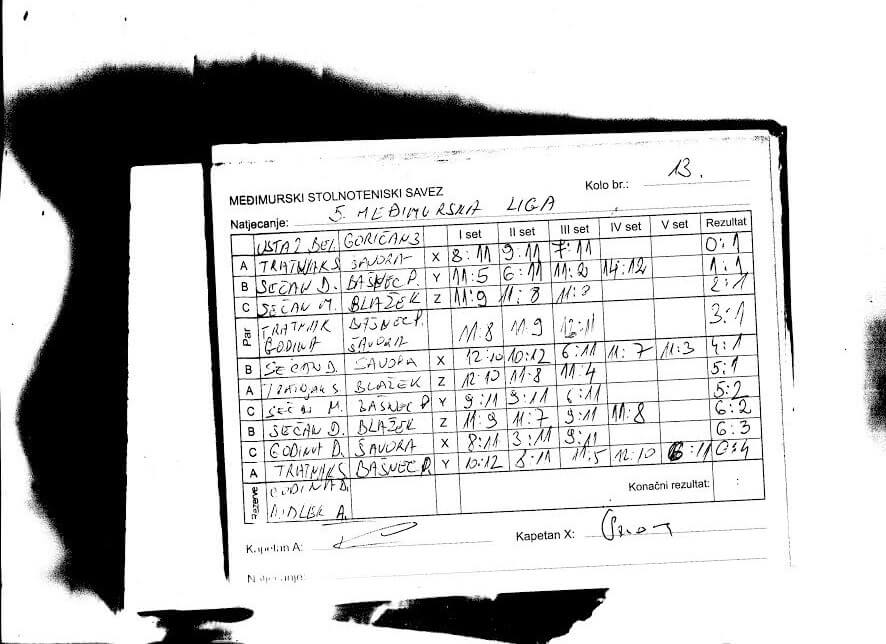 MEĐIMURSKI STOLNOTENISKI SAVEZ
Kolo br.: 13.
Natjecanje: 5. MEĐIMURSKA LIGA
GORIČAN 3 I set II set III set IV set V set Rezultat
A TRATNJAK S ŠAVORA X 8:11 9:11 7:11 0:1
B SEČAN D. BAŠNEC P. Y 11:5 6:11 11:2 14:12 1:1
C SEČAN M. BLAŽEK Z 11:9 11:8 2:1
Par TRATNJAK BAŠNEC P. 11:8 11:9 3:1
GODINA ŠAVORA
B SEČAN D. ŠAVORA X 12:10 10:12 6:11 11:7 11:3 4:1
A TRATNJAK S. BLAŽEK Z 12:10 11:8 11:4 5:1
C SEČAN M. BAŠNEC P Y 9:11 9:11 6:11 5:2
B SEČAN D. BLAŽEK Z 11:9 11:7 9:11 11:8 6:2
C GODINA D. ŠAVORA X 8:11 3:11 9:11 6:3
A TRATNJAK S BAŠNEC P. Y 10:12 8:11 11:5 12:10 6:11
Rezerve GODINA D.
Konačni rezultat: :
Kapetan A: Kapetan X:
Natjecanje: